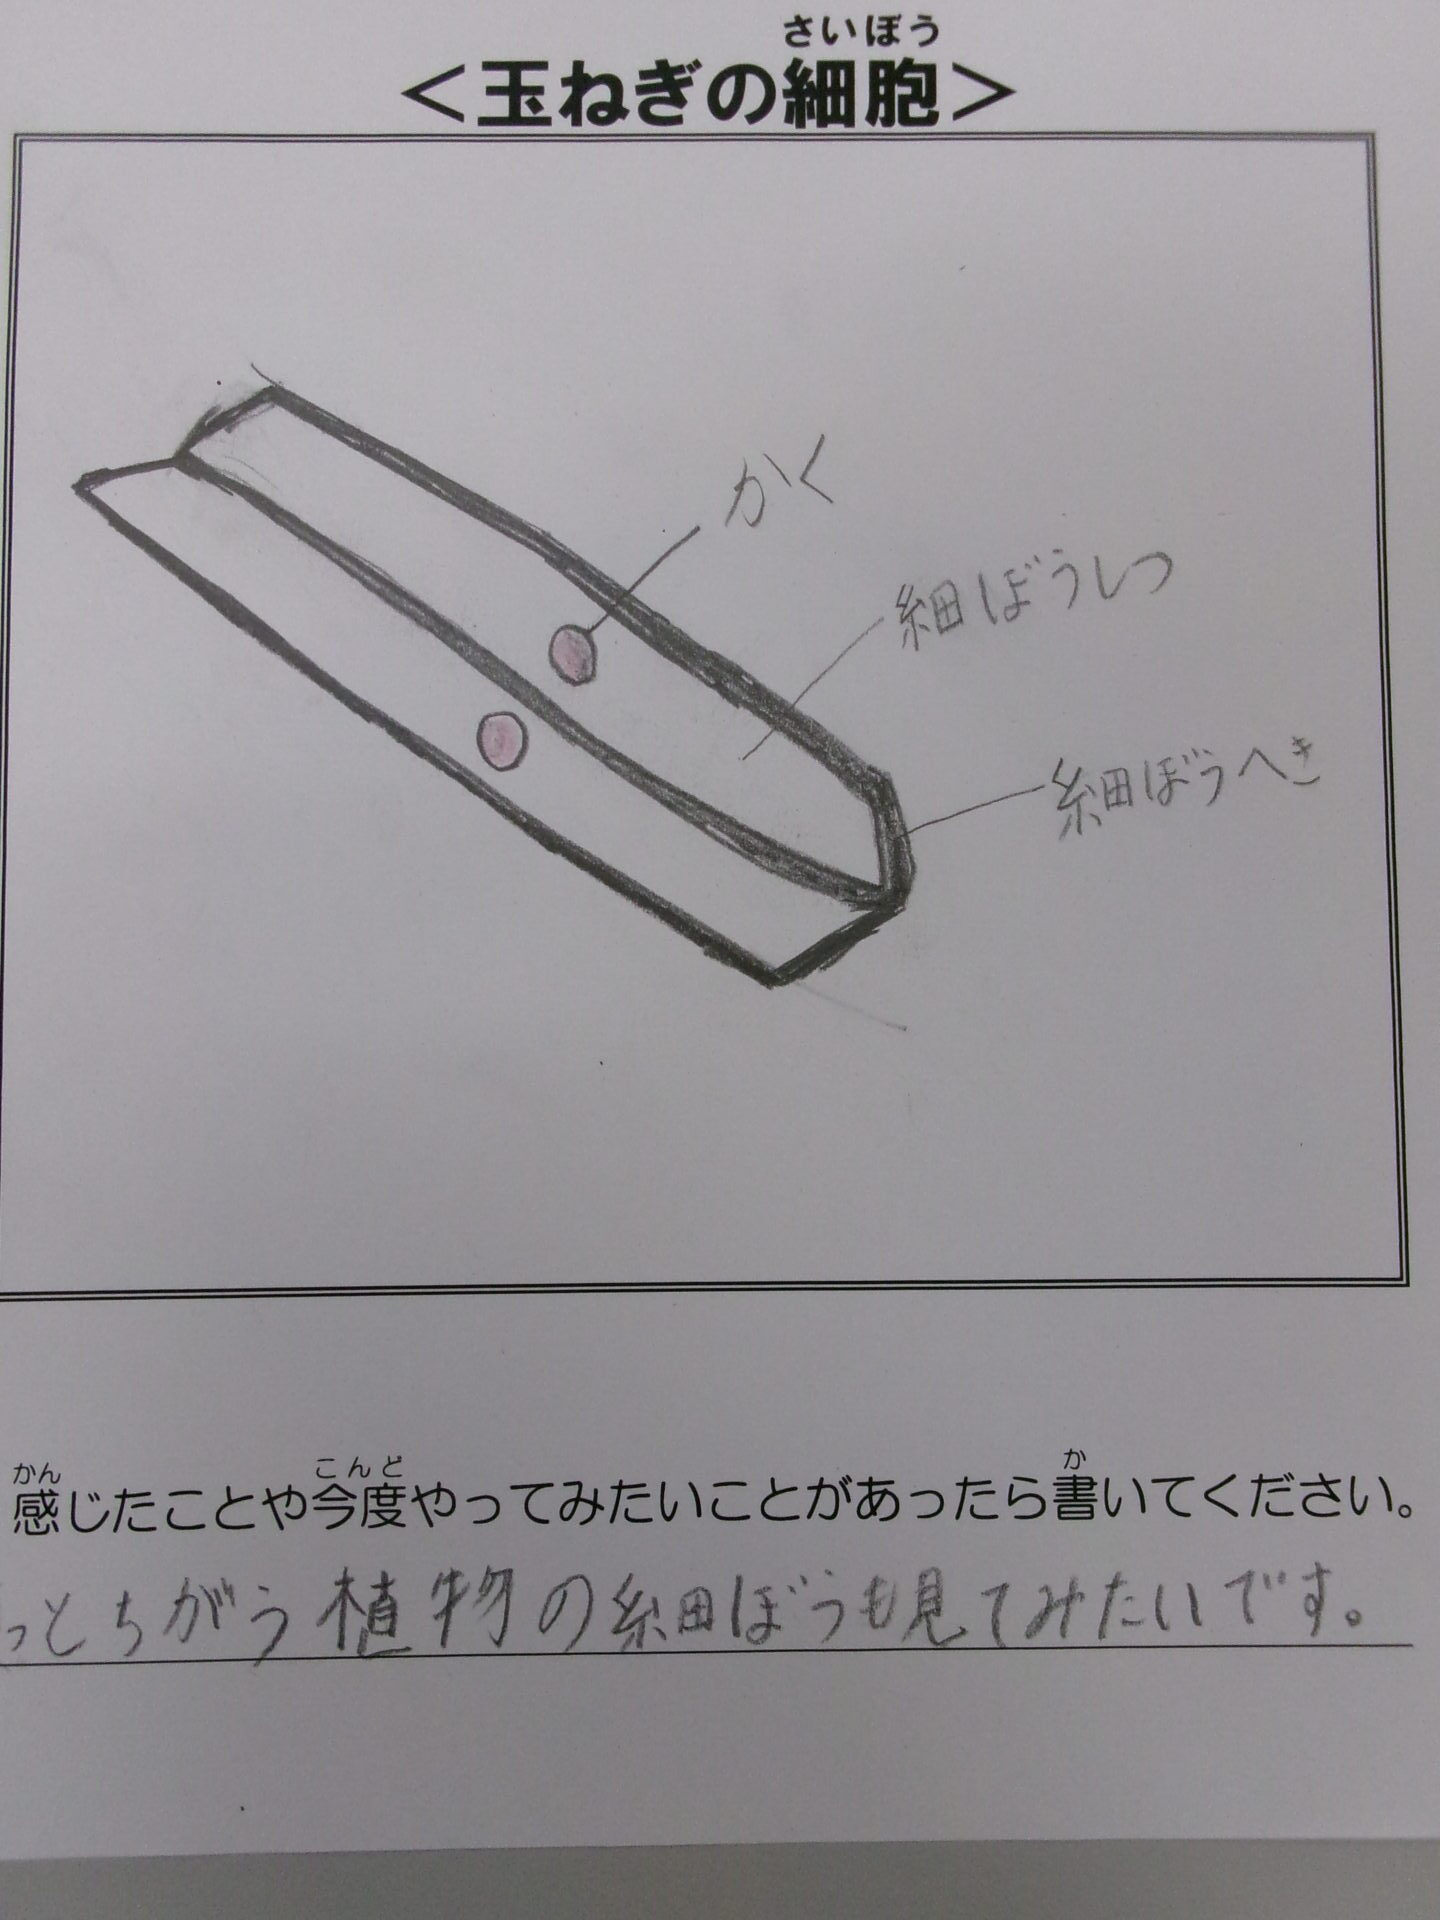 さいぼう
＜玉ねぎの細胞＞
かく
細ぼうしつ
細ぼうへき
かん こんど か
感じたことや今度やってみたいことがあったら書いてください。
っとちがう植物の細ぼうも見てみたいです。